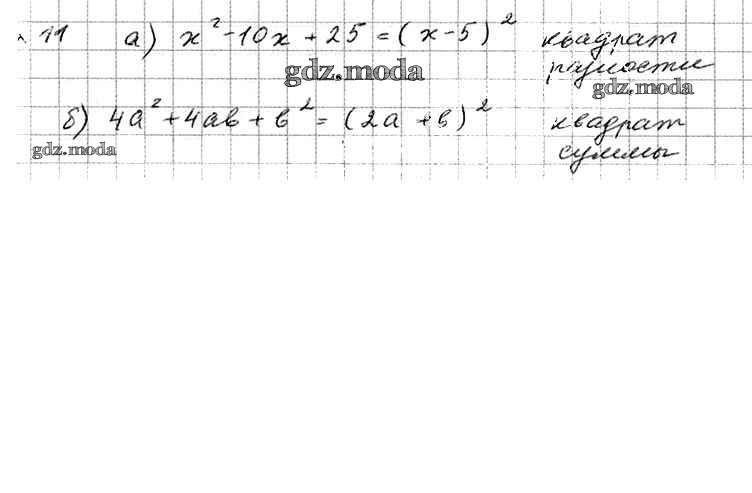 11 а) x² - 10x + 25 = (x - 5)² квадрат
разности
gdz.moda
gdz.moda
б) 4a² + 4ab + b² = (2a + b)² квадрат
суммы
gdz.moda